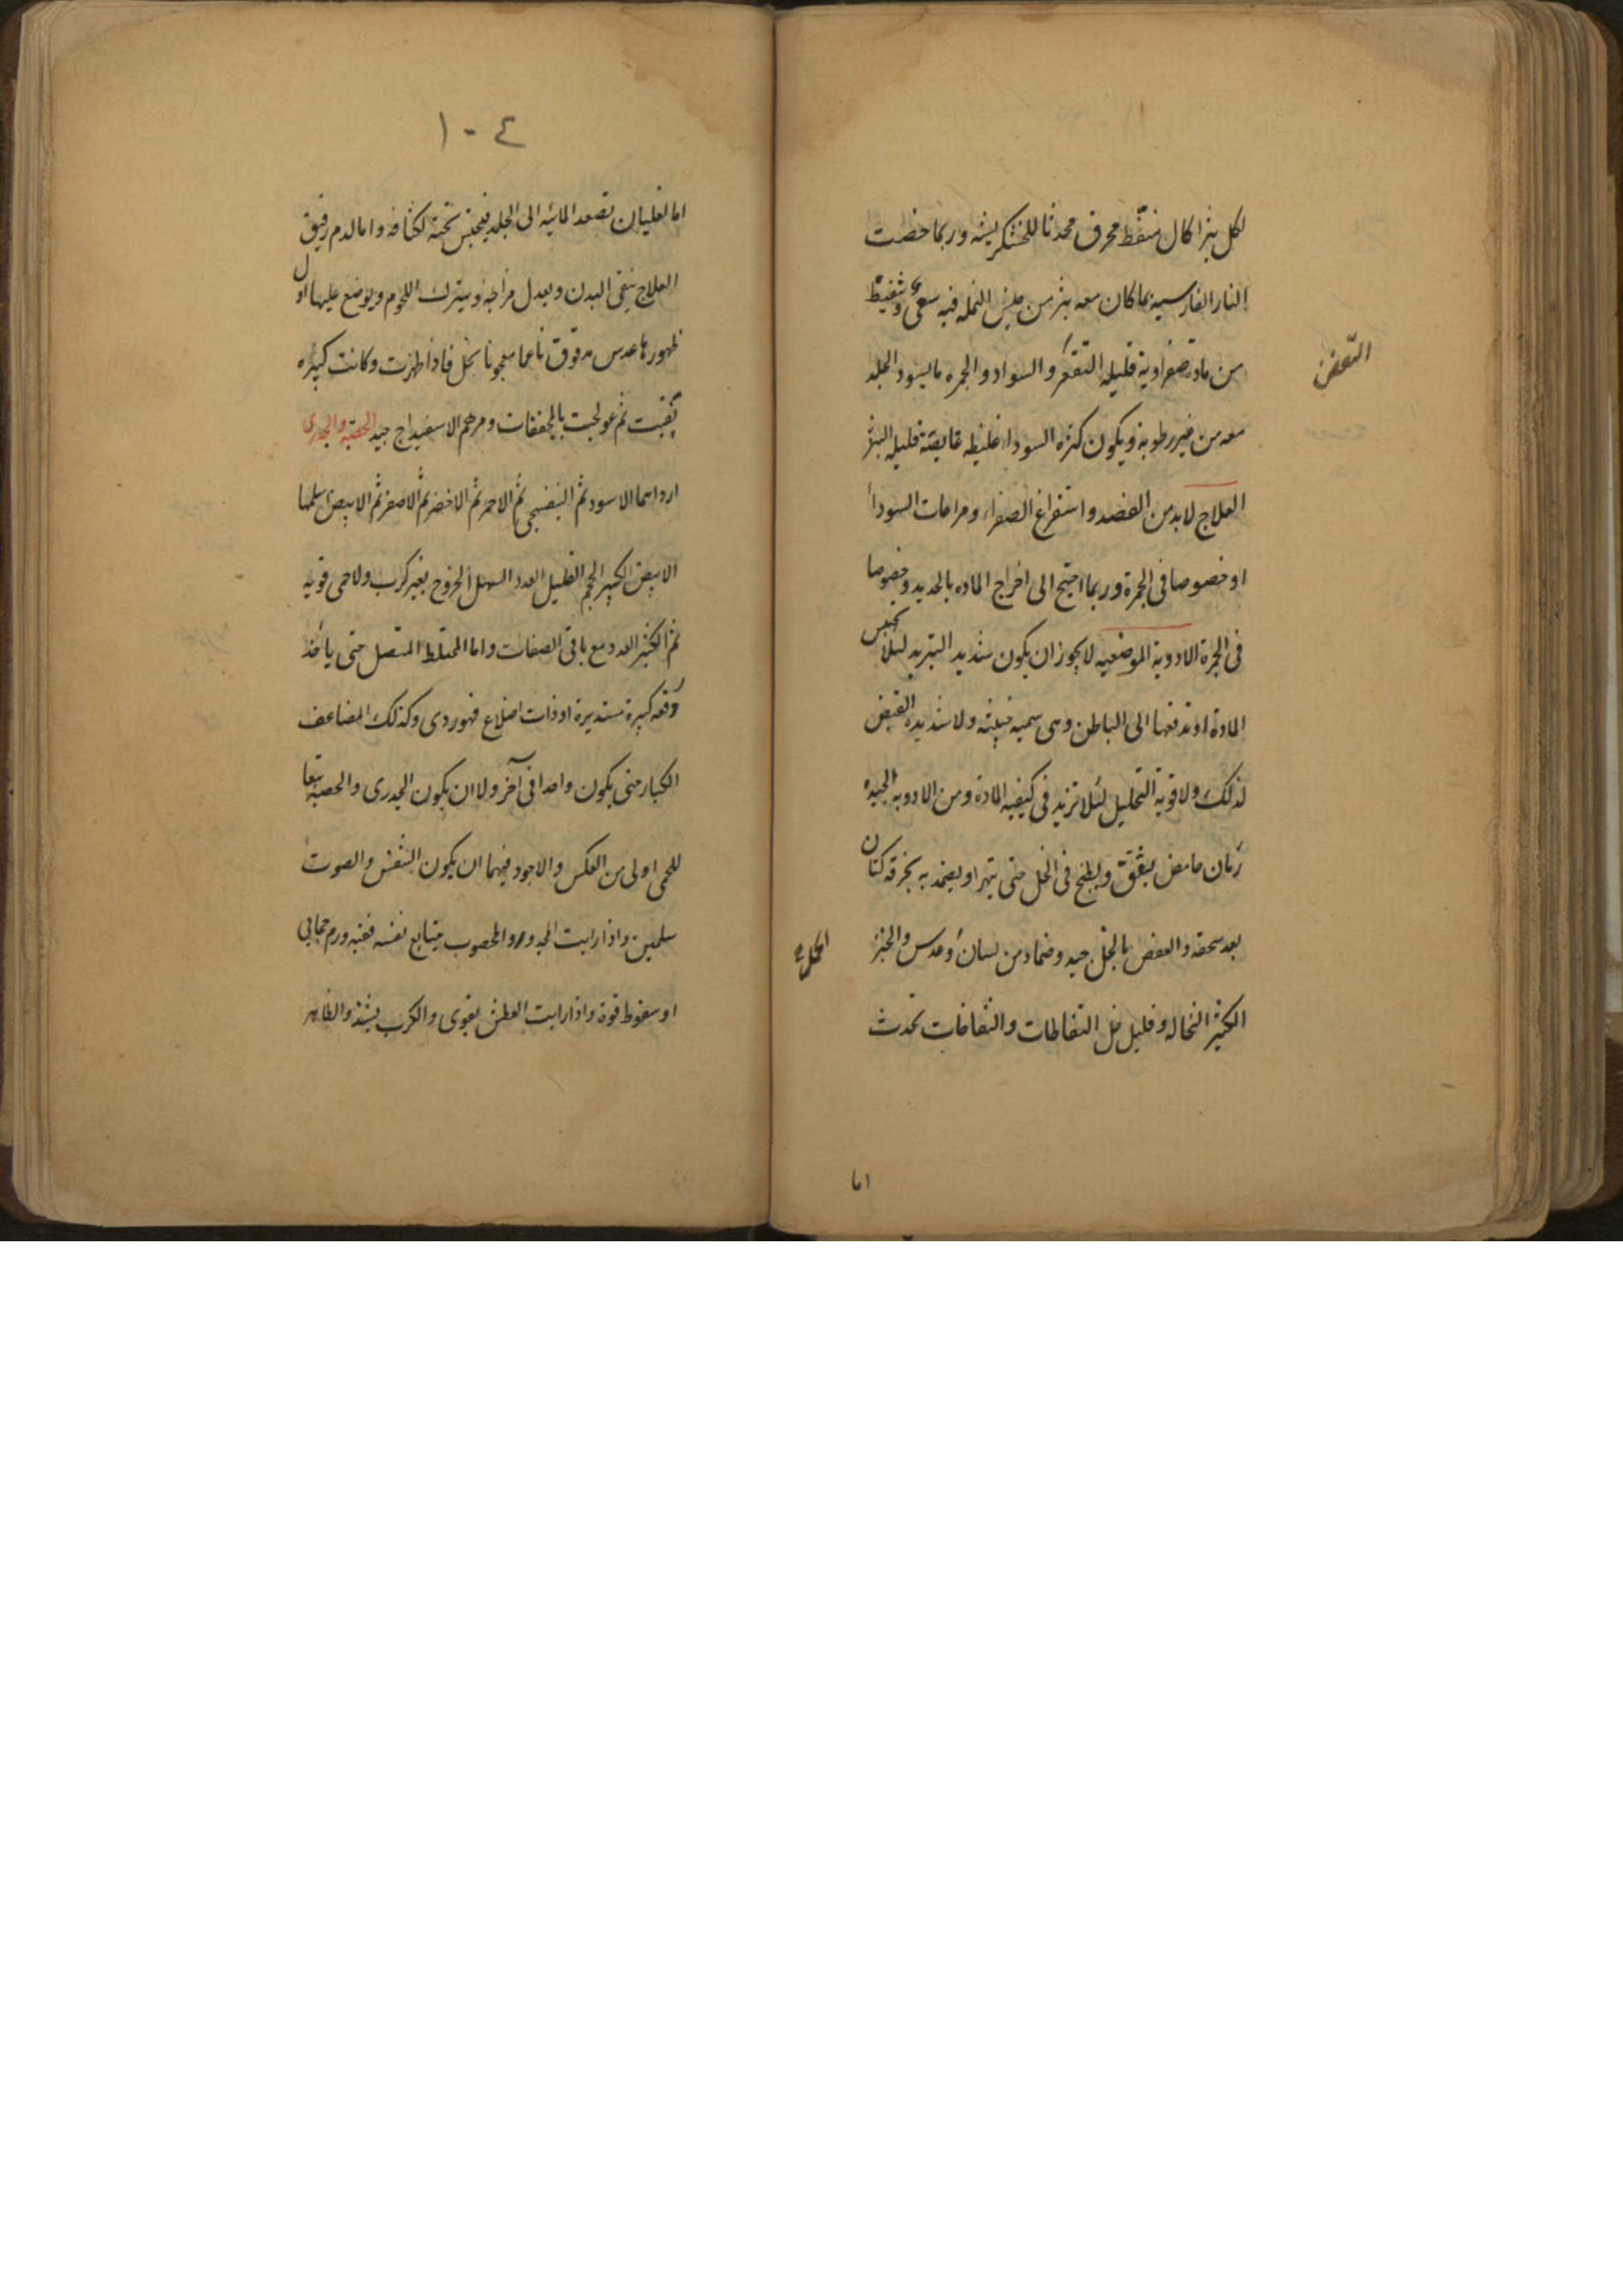 لكل بثر اكال منفط محرق محدثا للخشكريشه وربما خصت
النار الفارسيه بما كان معه بثر من جنس النمله فيه سعى وتنفيط
من مادة صفراوية قليله التقعر والسواد والجمره ما يسود الجلد
معه من غير رطوبة ويكون كثره السوداء غليظه غايصة قليله البثر
العلاج لابد من الفصد واستفراغ الصفراء ومراعات السودا
او خصوصا فى الجمرة وربما احتيج الى اخراج الماده بالحديد وخصوصا
فى الجمرة الادوية الموضعيه لايجوز ان يكون شديد التبريد ليلا تحبس
المادة او تدفعها الى الباطن وهى سميه خبيثه ولا شديده القبض
لذلك ولا قوية التحليل لئلا تزيد فى كيفيه المادة ومن الادويه الجيده
رمان حامض يشقق ويطبخ فى الخل حتى يتهرا ويضمد به بخرقه كتان
بعد سحقه والعفص بالخل جيد وضماد من لسان وعدس والخبز
الكثير النخاله وقليل خل النفاطات والنفاخات تحدث
اما
١٠٤
اما لغليان تصعد المائيه الى الجلد فيحتبس تحته لكثافه واما لدم رقيق
العلاج ينقى البدن ويعدل مزاجه ويترك اللحوم ويوضع عليها اول
ظهورها عدس مدقوق ناعما معجونا بخل فاذا ظهرت وكانت كبيره
ثقبت ثم عولجت بالمجففات ومرهم الاسفيداج جيد الحصبه والجدرى
ارداهما الاسود ثم البنفسجى ثم الاحمر ثم الاخضر ثم الاصفر ثم الابيض اسلمها
الابيض الكبير الحجم القليل العدد السهل الخروج بغير كرب ولا حمى قويه
ثم الكثير العدد مع باقى الصفات واما المختلط المتصل حتى ياخذ
رقعه كبيرة مستديرة او ذات اضلاع فهو ردى وكذلك المضاعف
الكبار حتى يكون واحدا فى آخر ولا ان يكون الجدرى والحصبه تبعا
للحمى اولى من العكس والاجود فيهما ان يكون النفس والصوت
سليمين واذا رايت المجدور والمحصوب يتتابع نفسه ففيه ورم حجابى
او سقوط قوة واذا رايت العطش يقوى والكرب يشتد والظاهر